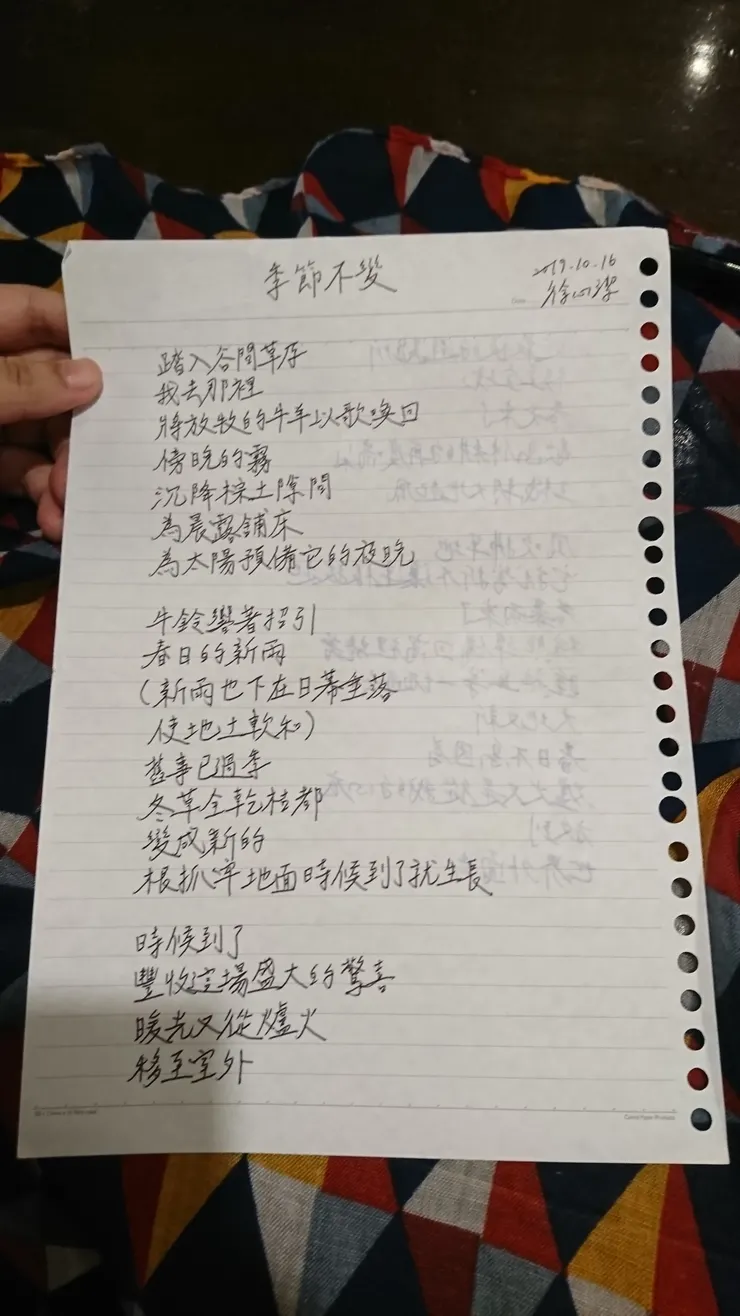 季節不變
2019.10.16
徐心潔
踏入谷間草原
我去那裡
將放牧的牛羊以歌喚回
傍晚的霧
沉降探土隙間
為晨露鋪床
為太陽預備它的夜晚
牛鈴響著招引
春日的新雨
(新雨也下在日幕垂落
使地土軟和)
舊事已過季
冬草全乾枯都
變成新的
根抓牢地面時候到了就生長
時候到了
豐收這場盛大的驚喜
暖光又從爐火
移至室外